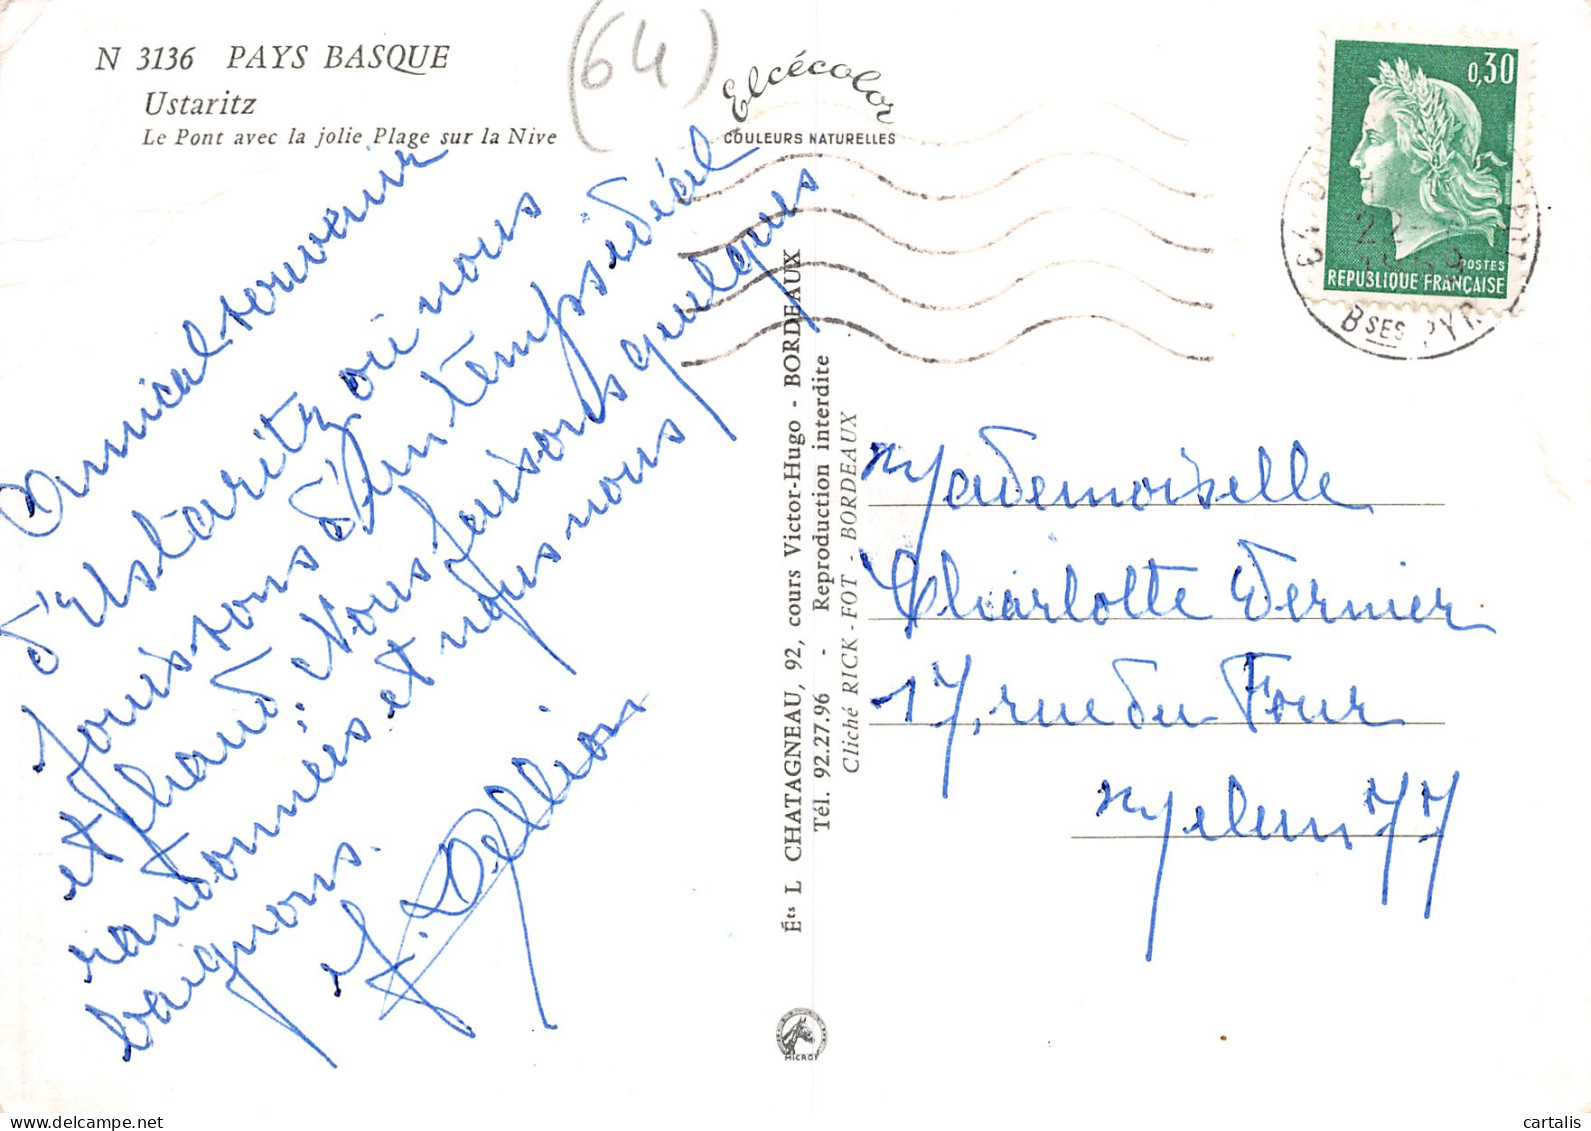 N 3136 PAYS BASQUE
Ustaritz
Le Pont avec la jolie Plage sur la Nive
(64)
Elcécolor
COULEURS NATURELLES
0,30
POSTES
REPUBLIQUE FRANÇAISE
BSES PYR
Amical souvenir
d'Ustaritz où nous
jouissons d'un temps idéal
et chaud. Nous faisons quelques
randonnées et nous nous
baignons.
Éts L CHATAGNEAU, 92, cours Victor-Hugo - BORDEAUX
Tél. 92.27.96 - Reproduction interdite
Cliché RICK-FOT - BORDEAUX
Mademoiselle
Charlotte Vernier
17, rue du Four
Melun 77
MICRO
delcampe.net
cartalis